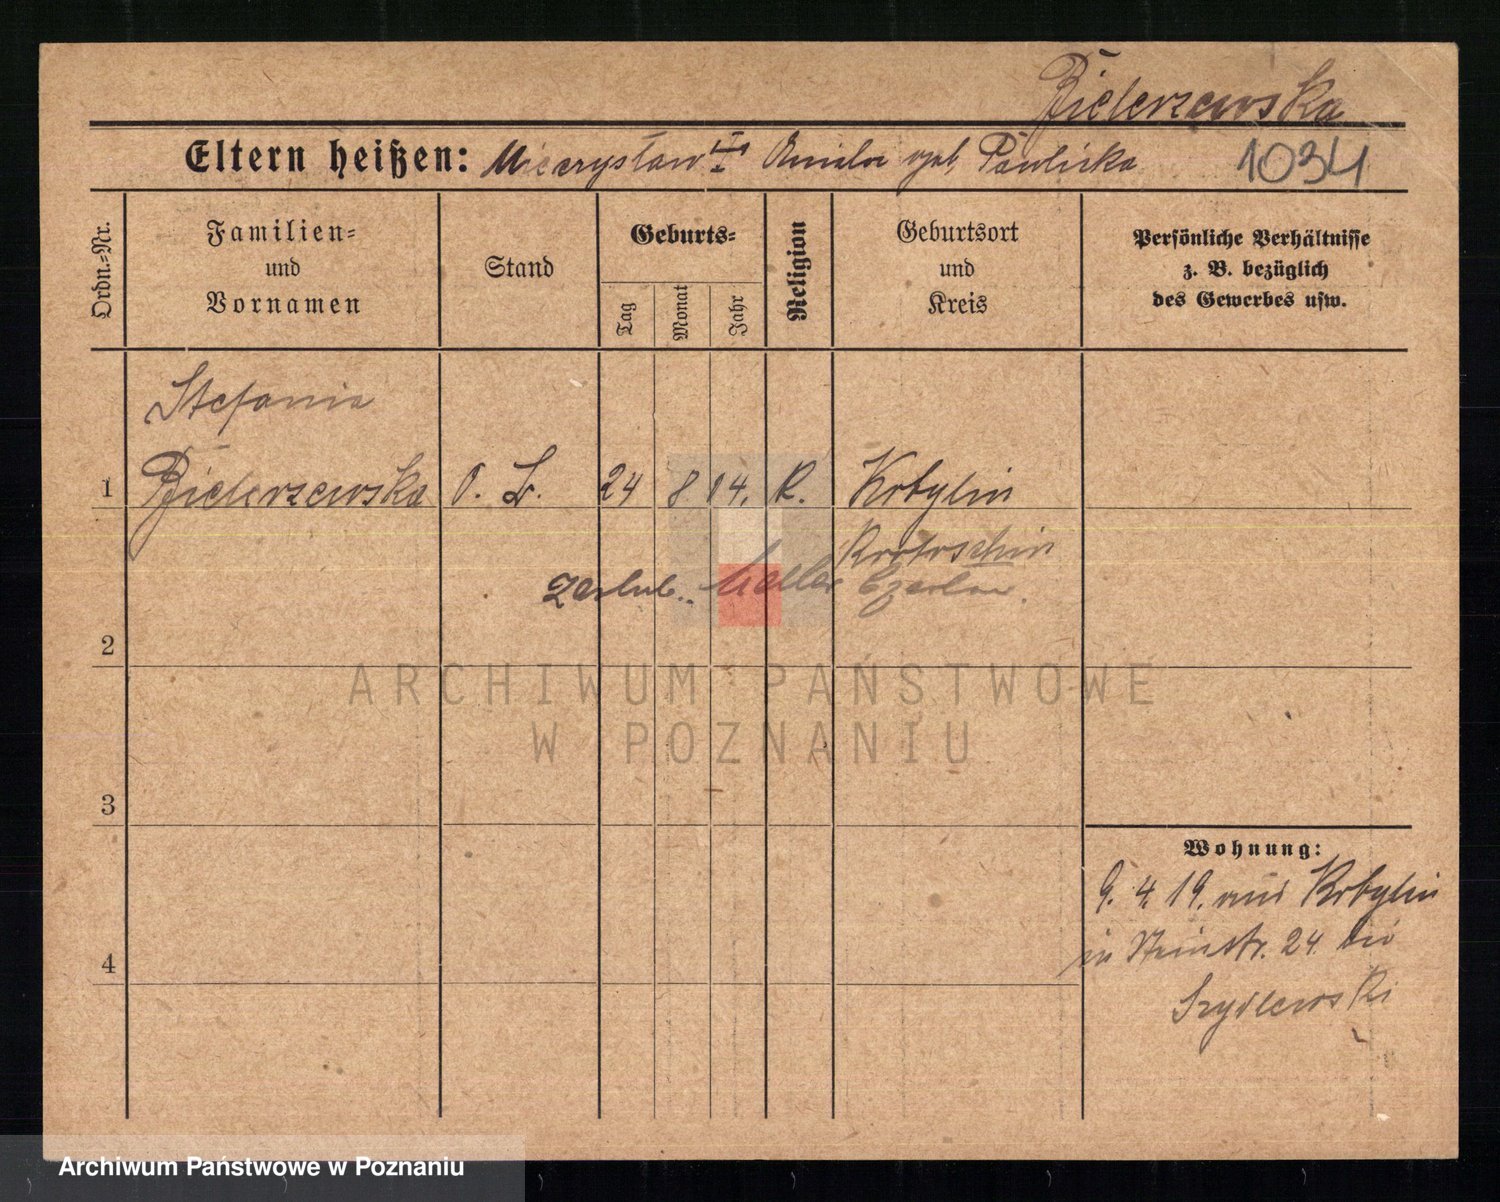 Bielerzewska
Eltern heißen: Mieczysław Emilie geb. Pawlicka 1034
Ordn.-Nr.
Familien-
und
Vornamen
Stand
Geburts-
Tag
Monat
Jahr
Religion
Geburtsort
und
Kreis
Persönliche Verhältnisse
z. B. bezüglich
des Gewerbes usw.
Stefania
1 Bielerzewska o. L. 24 8 14. K. Kobylin
Krotoschin
2
3
4
Wohnung:
9. 4. 19. aus Kobylin
in Steinstr. 24 bei
Szydlewski
ARCHIWUM PAŃSTWOWE
W POZNANIU
Archiwum Państwowe w Poznaniu